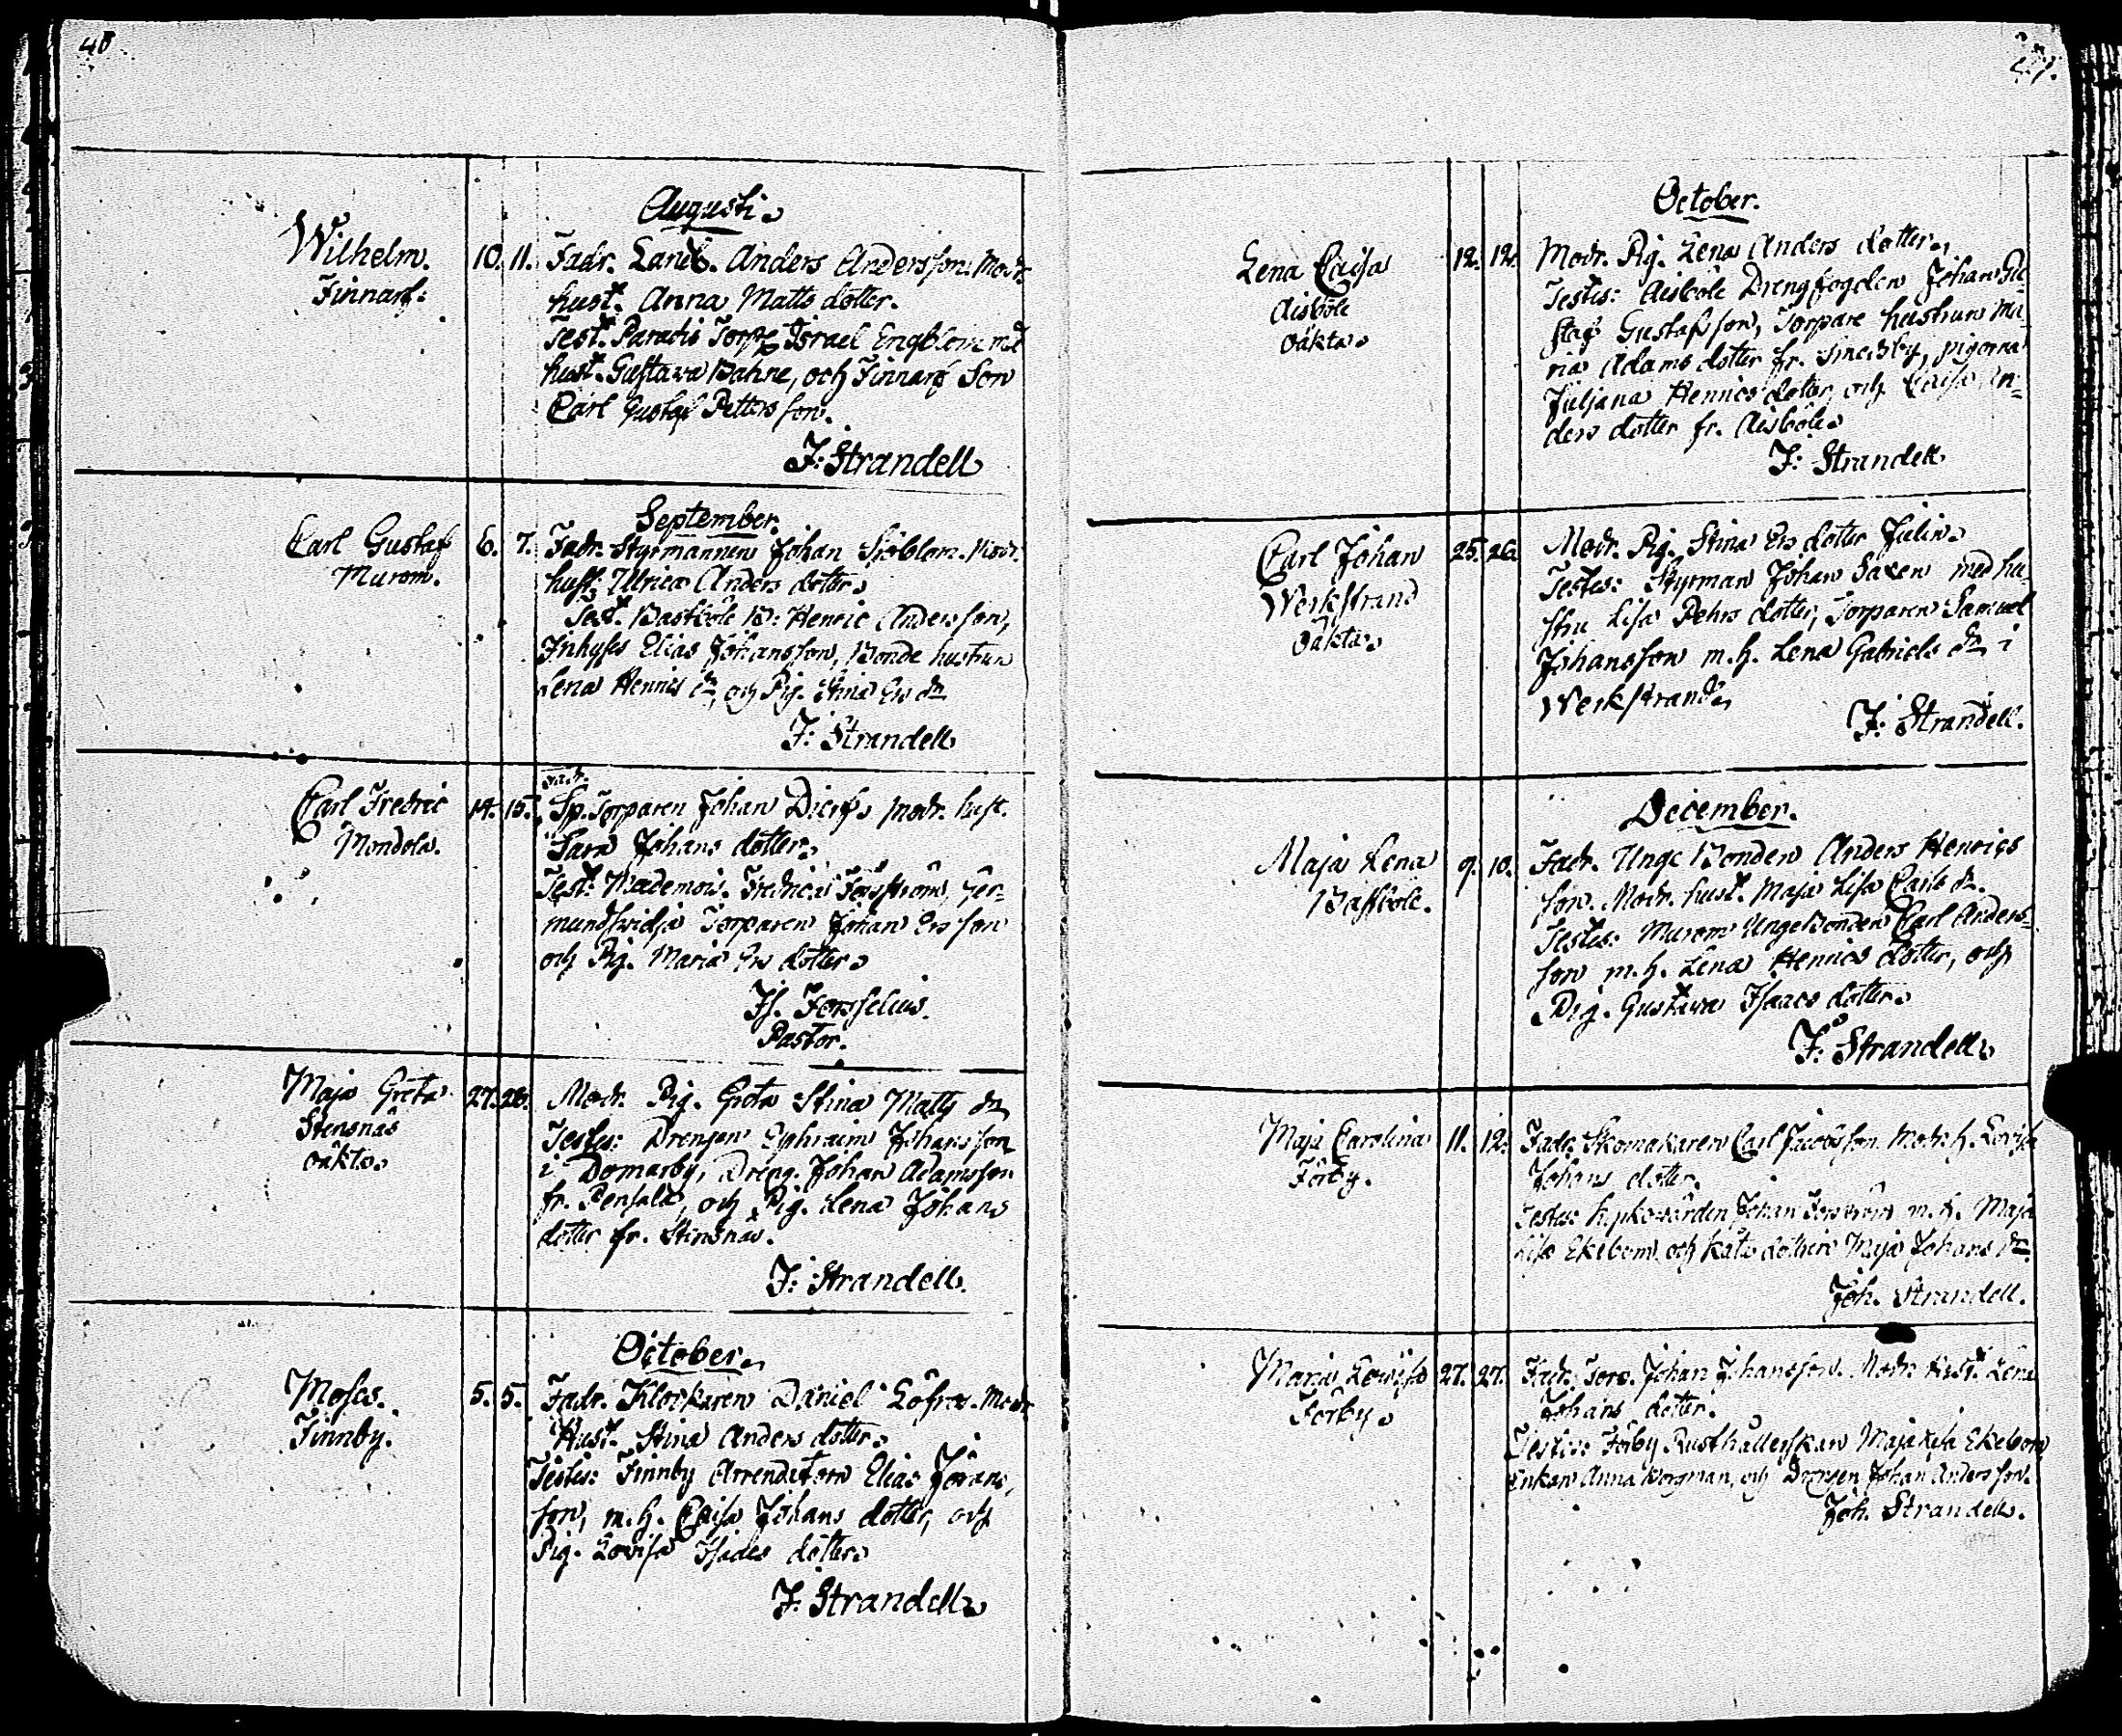 48
Augusti
Wilhelm. 10. 11. Fadr. Landb. Anders Andersson. Modr.
Finnarf: hust. Anna Matts dotter.
Test. Paradis Torp. Israel Engblom md
hust. Gustava Bahne, och Finnarf Son
Carl Gustaf Petters son.
J: Strandell
September.
Carl Gustaf 6. 7. Fadr. Styrmannen Johan Sjöblom. Modr.
Murom. hust. Ulrica Anders dotter
Test. Bastböle B: Henric Andersson,
Inhyses Elias Johansson, Bonde hustrun
Lena Henrics dr, och Pig. Stina Ers dr
J: Strandell
Fadr.
Carl Fredric 14. 15. Sp. Torparen Johan Modr. hust.
Mondola. Sara Johans dotter
Test: Mademois. Fredrica Ger-
mundsvidja Torparen Johan Ersson
och Pig. Maria Ers dotter
Is. Forsselius.
Pastor.
Maja Greta 27. 28. Modr. Pig. Greta Stina Matts dr
Stensnäs Testes: Drengen Ephraim Johansson
oäkta i Domarby, Dreng. Johan Adamsson
fr. Pensala, och Pig. Lena Johans
dotter fr. Stensnäs.
J: Strandell.
October
Moses. 5. 5. Fadr. Klockaren Daniel Löfra. Modr
Finnby. Hust. Stina Anders dotter
Testes: Finnby Arrendatorn Elias Johans
son, m. h. Caisa Johans dotter, och
Pig. Lovisa Isacs dotter
J: Strandell
October.
Lena Caisa 12. 12. Modr. Pig. Lena Anders dotter
Aisböle Testes: Aisböle Drengfogden Johan Gu-
oäkta staf Gustafsson, Torpare hustrun Ma-
ria Adams dotter fr. Smedsby, pigorna
Juljana Henrics doter och Caisa An-
ders dotter fr. Aisböle
J: Strandell
Carl Johan 25. 26. Modr. Pig. Stina Ers dotter Julin
Werkstrand Testes: Styrman Johan Saxen med hu
oäkta stru Lisa Pehrs dotter, Torparen Samuel
Johansson m. h. Lena Gabriels dr i
Werkstrand
J: Strandell.
December.
Maja Lena 9. 10. Fadr. Unge Bonden Anders Henrics
Bastböle. son. Modr. hust. Maja Lisa Carls dr.
Testes: Murom Unge Bonden Carl Anders-
son m. h. Lena Henrics dotter, och
Pig. Gustava Isaacs dotter
J: Strandell
Maja Carolina 11. 12. Fadr. Skomakaren Carl Jacobsson. Modr. h. Lovisa
Förby. Johans dotter.
Testes: Johan m. h. Maja
Lisa Ekebom, och Maja Johans dr
Joh. Strandell.
Maria Lovisa 27. 27. Fadr. Torp. Johan Johansson. Modr. hust. Lena
Förby Johans dotter.
Testes: Förby Rusthållerskan Maja Lisa Ekebom,
Enkan Anna Borgman, och Drengen Johan Andersson.
Joh. Strandell.